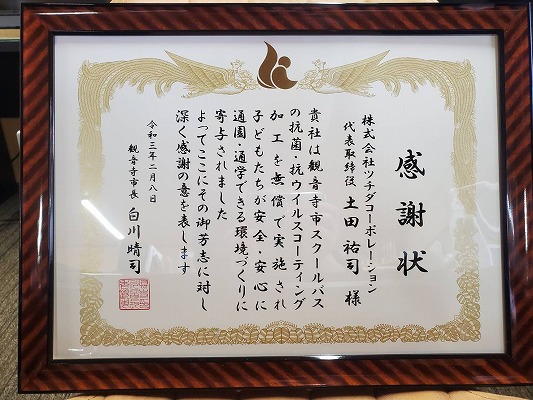 感謝状
株式会社ツチダコーポレーション
代表取締役 土田祐司 様
貴社は観音寺市スクールバス
の抗菌・抗ウイルスコーティング
加工を無償で実施され
子どもたちが安全・安心に
通園・通学できる環境づくりに
寄与されました
よってここにその御芳志に対し
深く感謝の意を表します
令和三年二月八日
観音寺市長 白川晴司